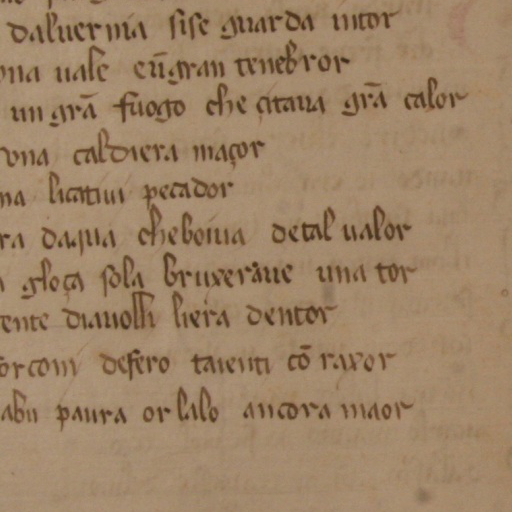 daluernia sise guarda intor
ona uale eũ gran tenebror
un grã fuogo che çitaua grã calor
una caldiera maçor
na licatiui pecador
ra daqua che boiua de tal ualor
a gloça sola bruxeraue una tor
ente diauolli liera dentor
forconi defero taienti cõ raxor
abu paura or lalo ancora maor